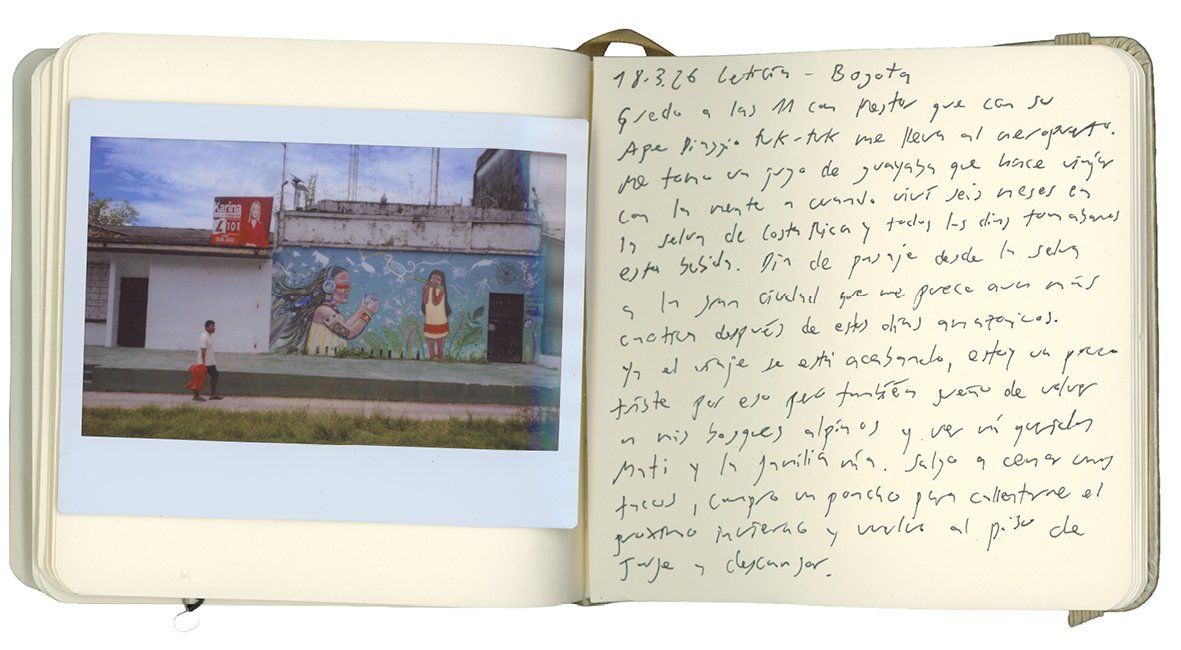 Karina
Z 101
18.3.26 Leticia - Bogota
Quedo a las 11 con Nestor que con su
Ape Piaggio tuk-tuk me lleva al aeropuerto.
Me tomo un jugo de guayaba que hace viajar
con la mente a cuando viví seis meses en
la selva de Costa Rica y todos los días tomabamos
esta bebida. Día de pasaje desde la selva
a la gran ciudad que me parece aun más
caotica después de estos días amazonicos.
Ya el viaje se está acabando, estoy un poco
triste por eso pero también sueño de volver
a mis bosques alpinos y ver mi querida
Mati y la familia mia. Salgo a cenar unos
tacos, compro un poncho para calientarme el
proximo invierno y vuelvo al piso de
Jorge a descansar.